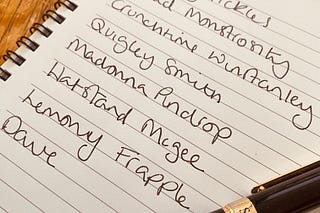 ckles
ad Monstrosity
Crunchtime Winstanley
Quigley Smith
Madonna Pindrop
Hatstand McGee
Lemony Frapple
Dave